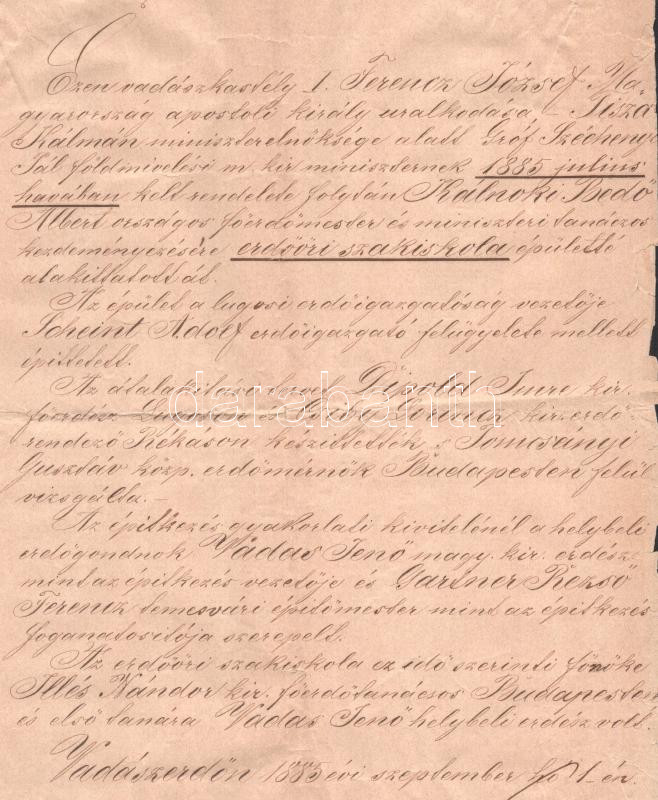 Ezen vadászkastély I. Ferencz József Ma-
gyarország apostoli király uralkodása – Tisza
Kálmán miniszterelnöksége alatt Gróf Széchenyi
Pál földmivelési m. kir miniszternek 1885 julius
havában kelt rendelete folytán Kálnoki Bedő
Albert országos főerdőmester és miniszteri tanácsos
kezdeményezésére erdőőri szakiskola épületté
alakittatott át.
Az épület a lugosi erdőigazgatóság vezetője
Scheint Adolf erdőigazgató felügyelete mellett
épittetett.
Az átalakitási tervek Dipold Imre kir.
főerdész és kir. erdő-
rendező Rékáson készittették, s Tomcsányi
Gusztáv közp. erdőmérnök Budapesten felül
vizsgálta.–
Az épitkezés gyakorlati kivitelénél a helybeli
erdőgondnok Vadas Jenő magy. kir. erdész
mint az épitkezés vezetője és Gartner Rezső
Ferencz temesvári épitőmester mint az épitkezés
foganatositója szerepelt.
Az erdőőri szakiskola ez idő szerinti főnöke
Illés Nándor kir. főerdőtanácsos Budapesten
és első tanára Vadas Jenő helybeli erdész volt.
Vadászerdőn 1885 évi szeptember hó 1-én.
darabanth